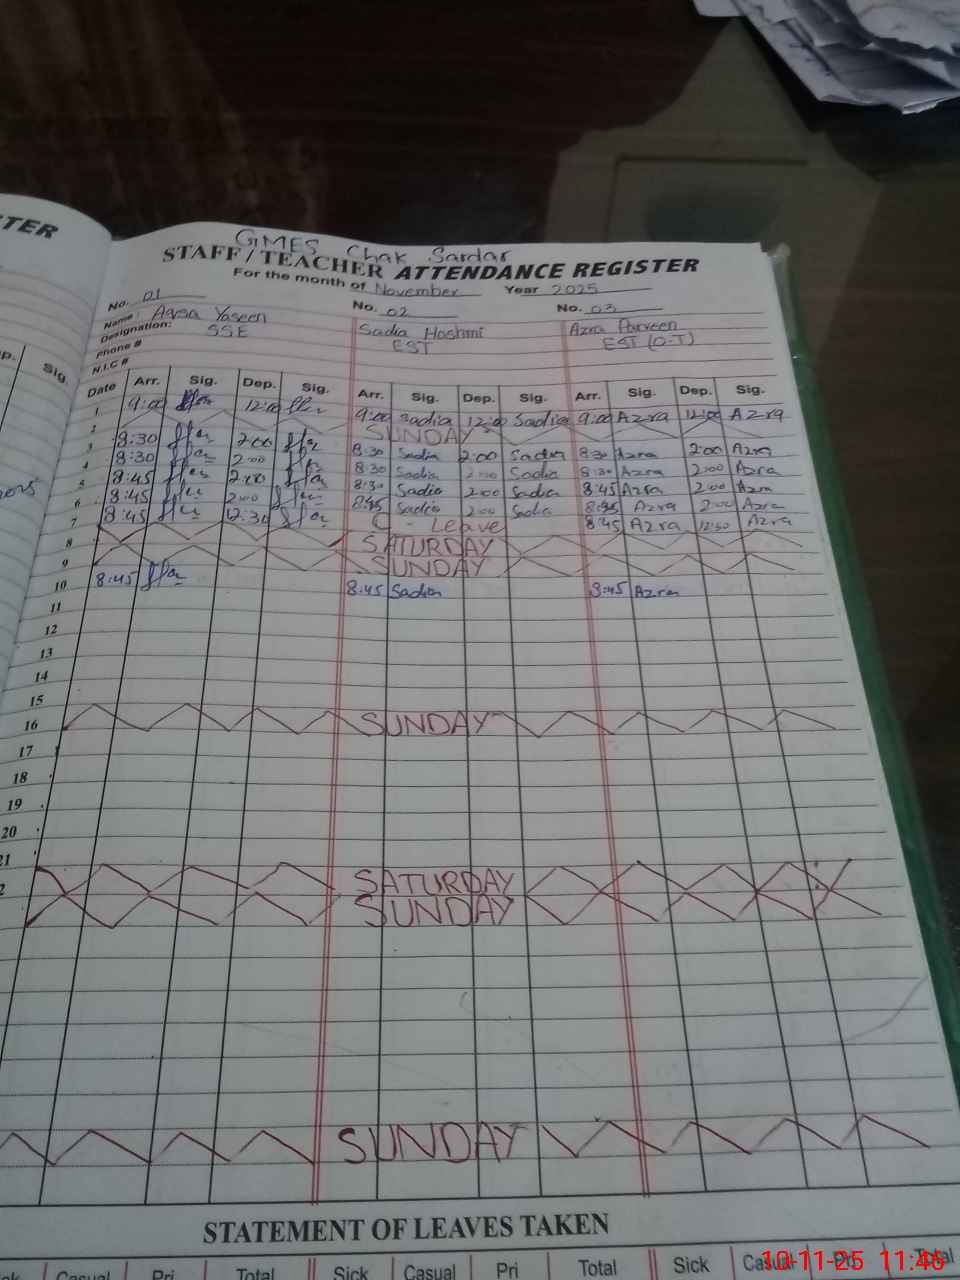 TER
GMES Chak Sardar
STAFF/TEACHER ATTENDANCE REGISTER
For the month of November Year 2025
No. 01 No. 02 No. 03
Name: Aqsa Yaseen Sadia Hashmi Azra Parveen
Designation: SSE EST EST (O-T)
Phone #
N.I.C #
p. Sig.
Date Arr. Sig. Dep. Sig. Arr. Sig. Dep. Sig. Arr. Sig. Dep. Sig.
1 9:00 12:00 9:00 Sadia 12:00 Sadia 9:00 Azra 12:00 Azra
2 SUNDAY
3 8:30 2:00 8:30 Sadia 2:00 Sadia 8:30 Azra 2:00 Azra
4 8:30 2:00 8:30 Sadia 2:00 Sadia 8:30 Azra 2:00 Azra
5 8:45 2:00 8:30 Sadia 2:00 Sadia 8:45 Azra 2:00 Azra
6 8:45 2:00 8:45 Sadia 2:00 Sadia 8:45 Azra 2:00 Azra
7 8:45 12:30 C - Leave 8:45 Azra 12:30 Azra
8 SATURDAY
9 SUNDAY
10 8:45 8:45 Sadia 8:45 Azra
11
12
13
14
15
16 SUNDAY
17
18
19
20
21
2 SATURDAY
SUNDAY
SUNDAY
STATEMENT OF LEAVES TAKEN
ck Casual Pri Total Sick Casual Pri Total Sick Casual Pri Total
10-11-25 11:46